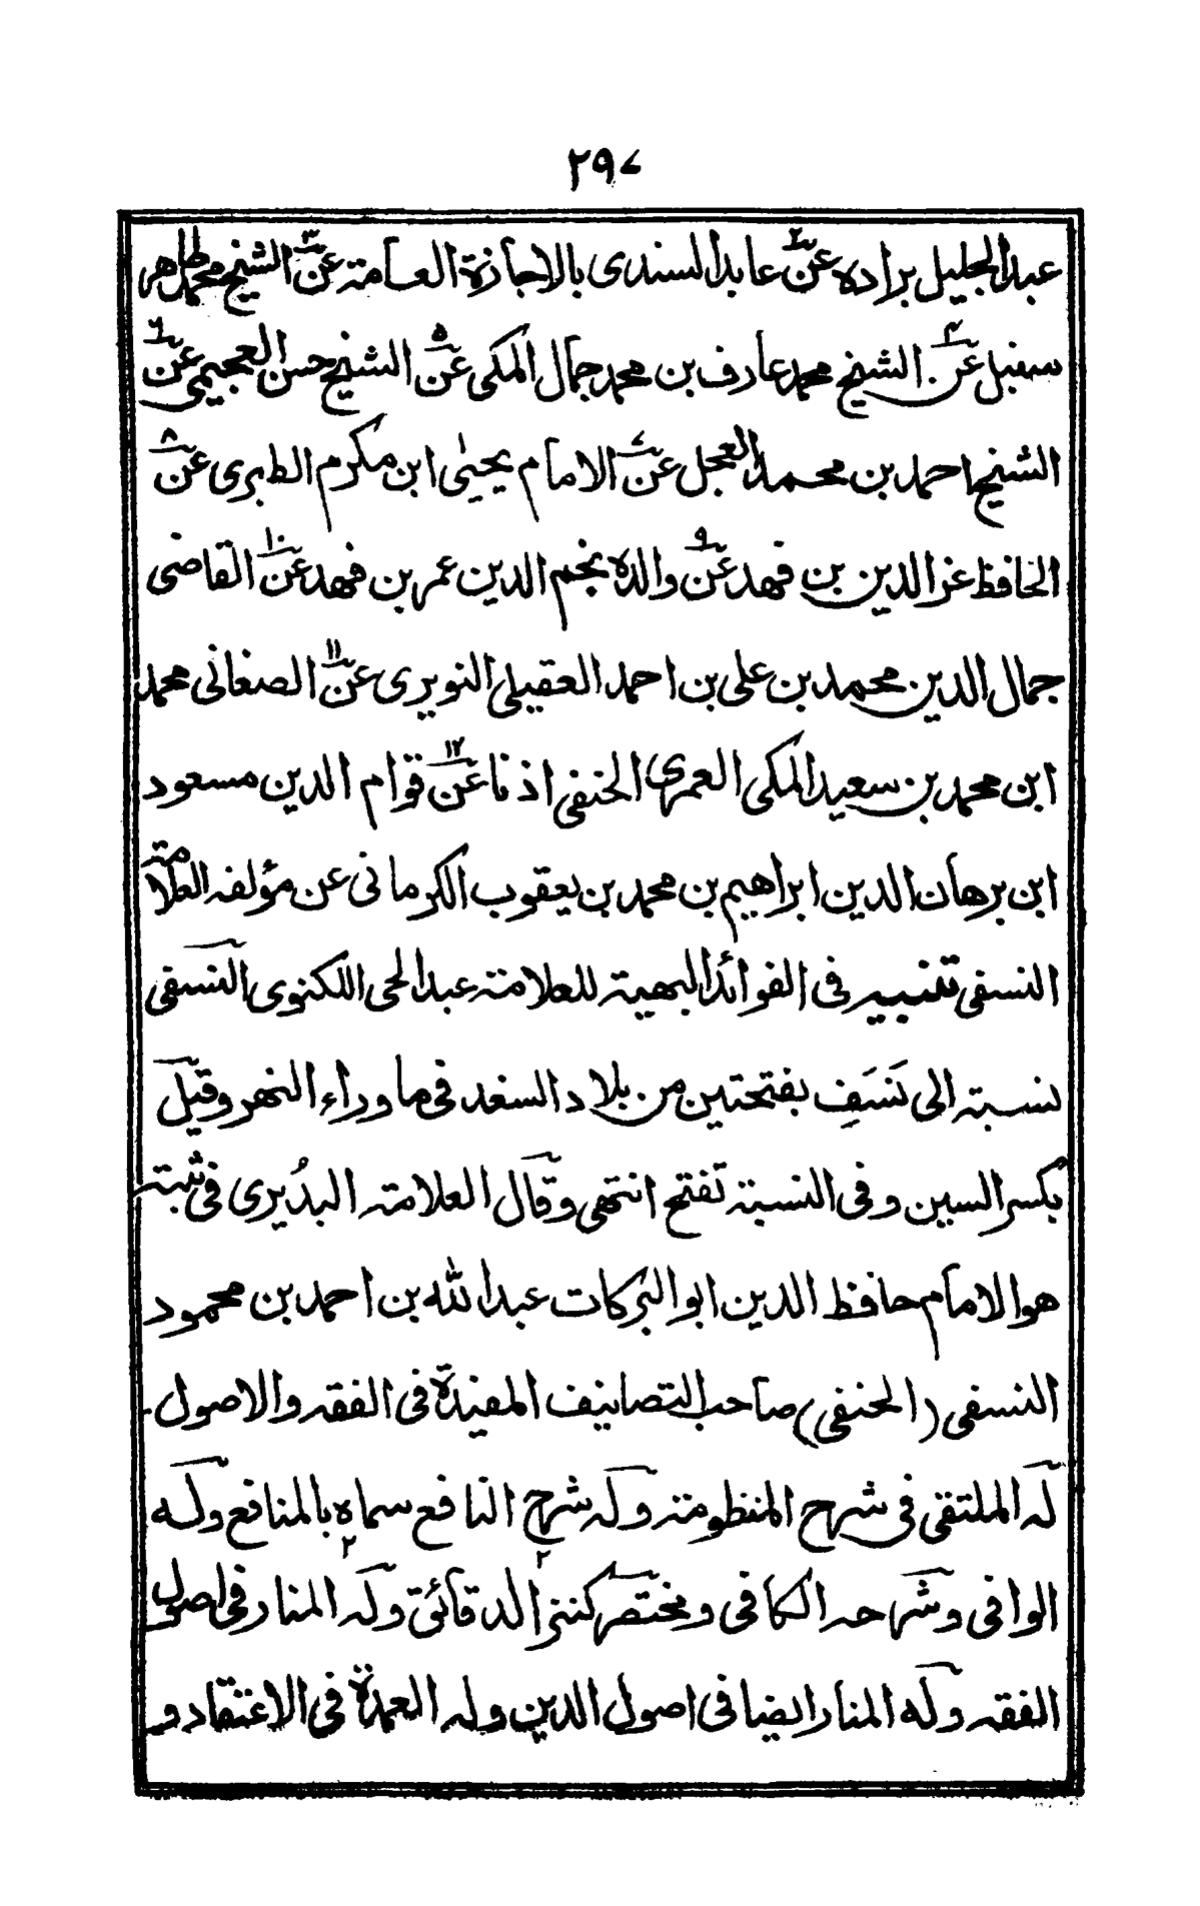 ٢٩٧
عبد الجليل براده عن٢ عابد السندى بالاجازة العامة عن٣ الشيخ محمد طاهر
سنبل عن٤ الشيخ محمد عارف بن محمد جمال المكى عن٥ الشيخ حسن العجيمى عن٦
الشيخ احمد بن محمد العجل عن٧ الامام يحيىٰ ابن مكرم الطبرى عن٨
الحافظ عز الدين بن فهد عن٩ والده نجم الدين عمر بن فهد عن١٠ القاضى
جمال الدين محمد بن على بن احمد العقيلى النويرى عن١١ الصغانى محمد
ابن محمد بن سعيد المكى العمرى الحنفى اذنا عن١٢ قوام الدين مسعود
ابن برهان الدين ابراهيم بن محمد بن يعقوب الكرمانى عن مؤلفه العلامة
النسفى تنبيه فى الفوائد البهية للعلامة عبد الحى اللكنوى النسفى
نسبة الى نَسَفِ بفتحتين من بلاد السغد فى ما وراء النهر وقيل
بكسر السين وفى النسبة تفتح انتهى وقال العلامة البدُيرى فى ثبته
هو الامام حافظ الدين ابو البركات عبد الله بن احمد بن محمود
النسفى (الحنفى) صاحب التصانيف المفيدة فى الفقه والاصول
له الملتقى فى شرح المنظومة وله شرح النافع سماه بالمنافع وله
الوافى وشرحه الكافى ومختصر٢ كنز الدقائق وله٢ المنار فى اصول
الفقه وله المنار ايضا فى اصول الدين وله العمدة فى الاعتقاد و